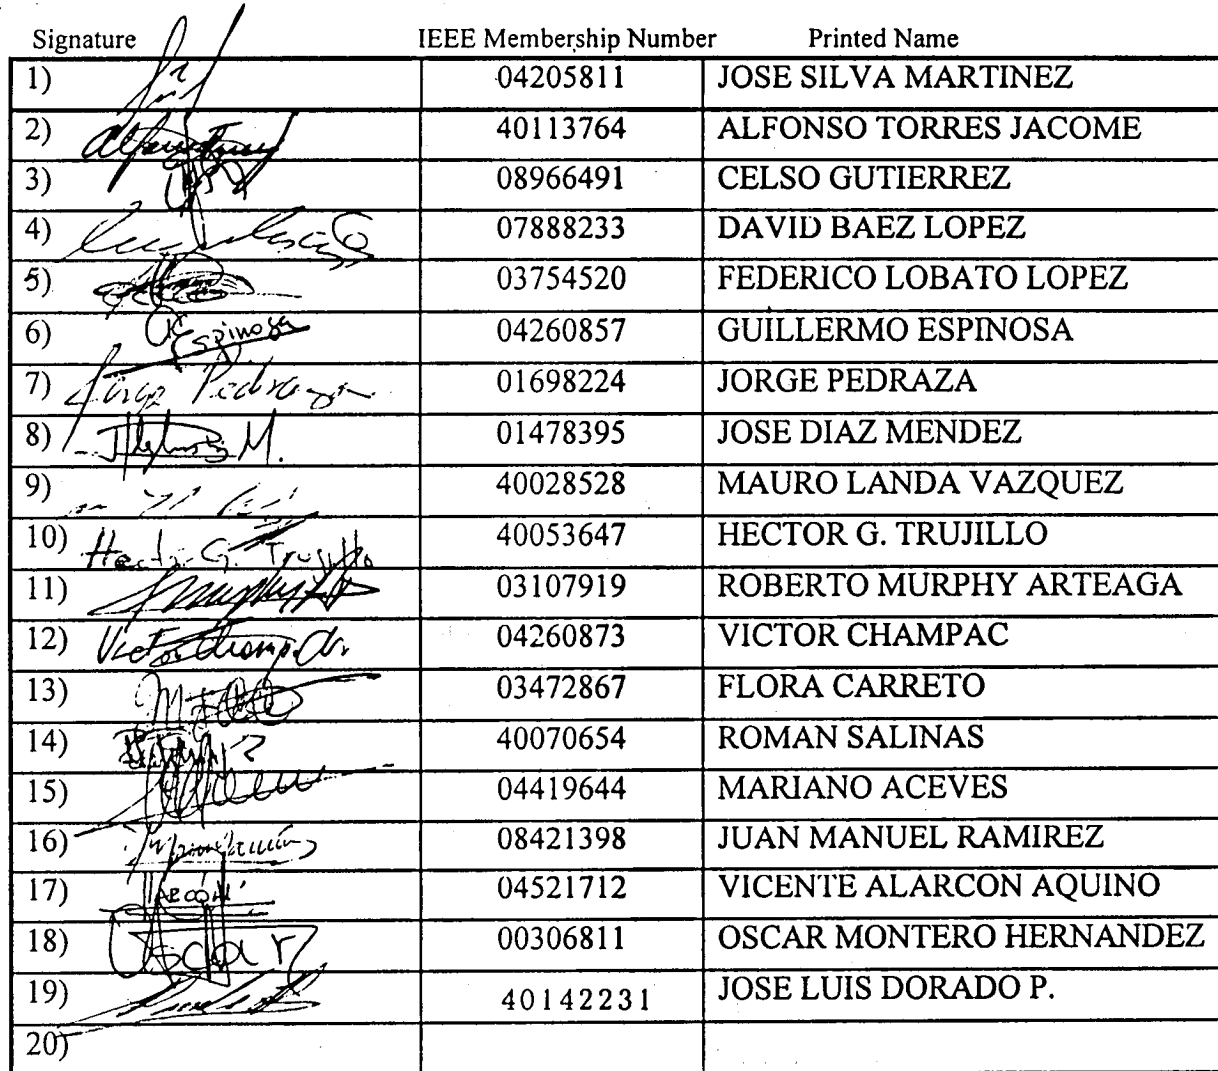 Signature IEEE Membership Number Printed Name
1) 04205811 JOSE SILVA MARTINEZ
2) 40113764 ALFONSO TORRES JACOME
3) 08966491 CELSO GUTIERREZ
4) 07888233 DAVID BAEZ LOPEZ
5) 03754520 FEDERICO LOBATO LOPEZ
6) Espinosa 04260857 GUILLERMO ESPINOSA
7) Jorge Pedraza 01698224 JORGE PEDRAZA
8) M. 01478395 JOSE DIAZ MENDEZ
9) 40028528 MAURO LANDA VAZQUEZ
10) Hector G. Trujillo 40053647 HECTOR G. TRUJILLO
11) 03107919 ROBERTO MURPHY ARTEAGA
12) Victor 04260873 VICTOR CHAMPAC
13) 03472867 FLORA CARRETO
14) 40070654 ROMAN SALINAS
15) 04419644 MARIANO ACEVES
16) 08421398 JUAN MANUEL RAMIREZ
17) 04521712 VICENTE ALARCON AQUINO
18) Oscar 00306811 OSCAR MONTERO HERNANDEZ
19) 40142231 JOSE LUIS DORADO P.
20)